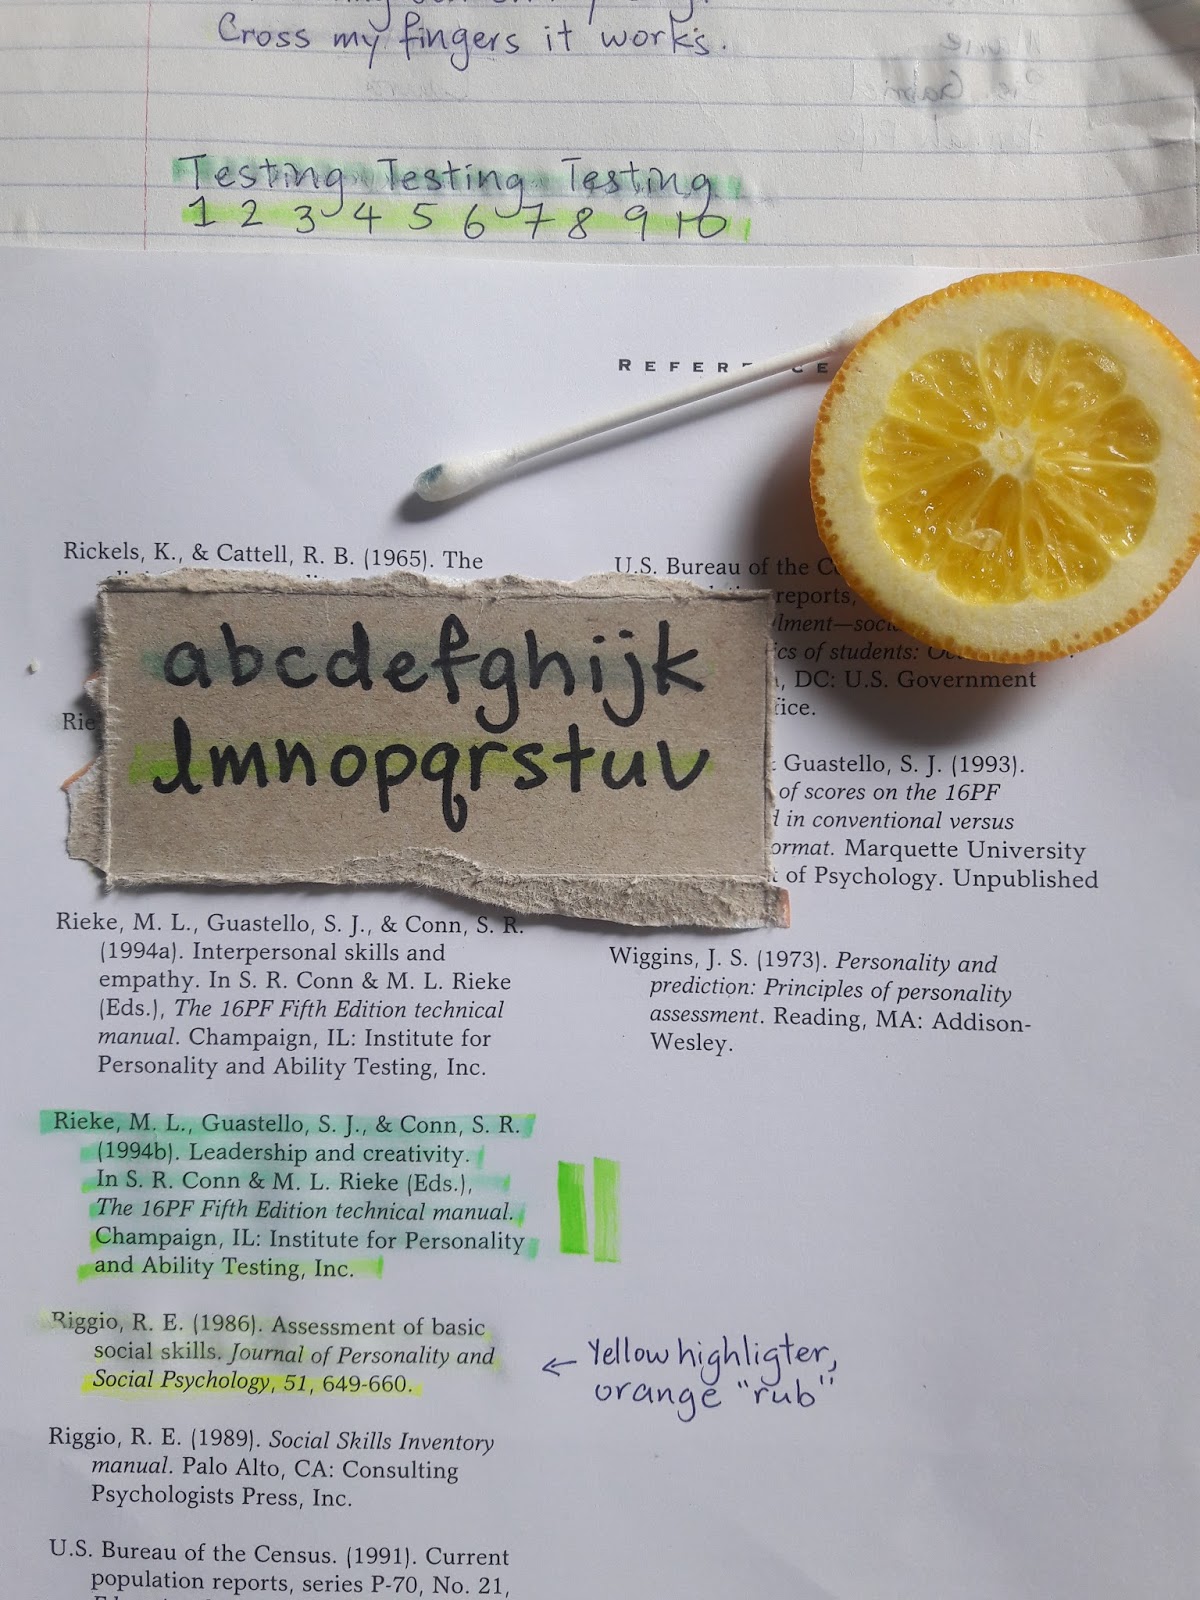 Cross my fingers it works.
Testing Testing Testing
1 2 3 4 5 6 7 8 9 10
REFERENCE
Rickels, K., & Cattell, R. B. (1965). The
abcdefghijk
lmnopqrstuv
Rie
Rieke, M. L., Guastello, S. J., & Conn, S. R.
(1994a). Interpersonal skills and
empathy. In S. R. Conn & M. L. Rieke
(Eds.), The 16PF Fifth Edition technical
manual. Champaign, IL: Institute for
Personality and Ability Testing, Inc.
Rieke, M. L., Guastello, S. J., & Conn, S. R.
(1994b). Leadership and creativity.
In S. R. Conn & M. L. Rieke (Eds.),
The 16PF Fifth Edition technical manual.
Champaign, IL: Institute for Personality
and Ability Testing, Inc.
Riggio, R. E. (1986). Assessment of basic
social skills. Journal of Personality and
Social Psychology, 51, 649-660.
Riggio, R. E. (1989). Social Skills Inventory
manual. Palo Alto, CA: Consulting
Psychologists Press, Inc.
U.S. Bureau of the Census. (1991). Current
population reports, series P-70, No. 21,
U.S. Bureau of the
reports,
of students:
, DC: U.S. Government
Guastello, S. J. (1993).
of scores on the 16PF
in conventional versus
Marquette University
of Psychology. Unpublished
Wiggins, J. S. (1973). Personality and
prediction: Principles of personality
assessment. Reading, MA: Addison-
Wesley.
← Yellow highligter,
orange "rub"